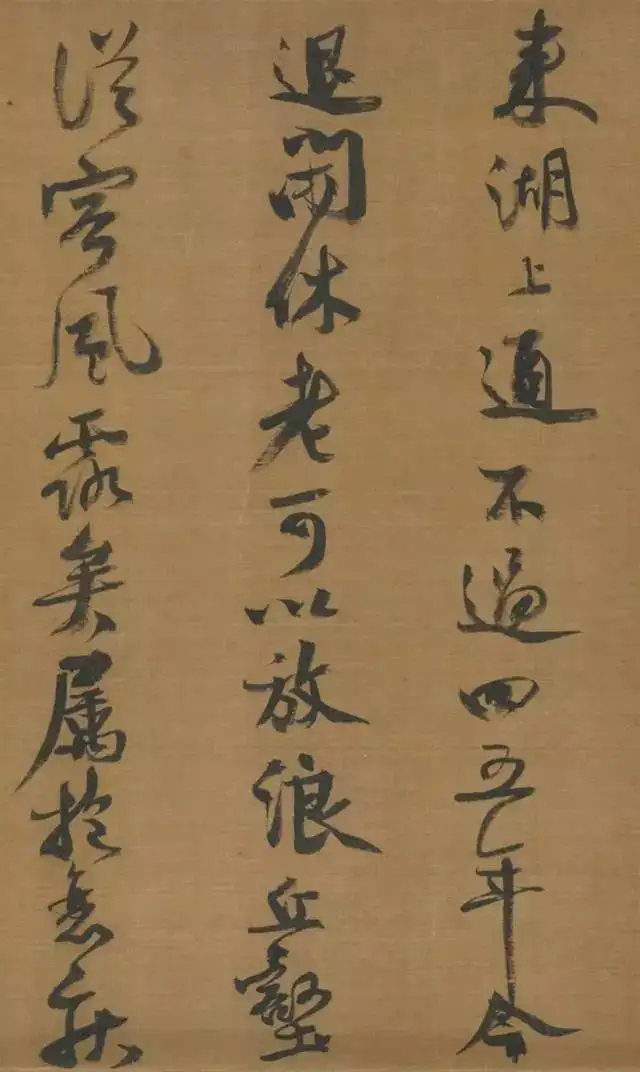 東湖上通不過四五年今
退閒休老可以放浪丘壑
從容風露矣屬於意秋